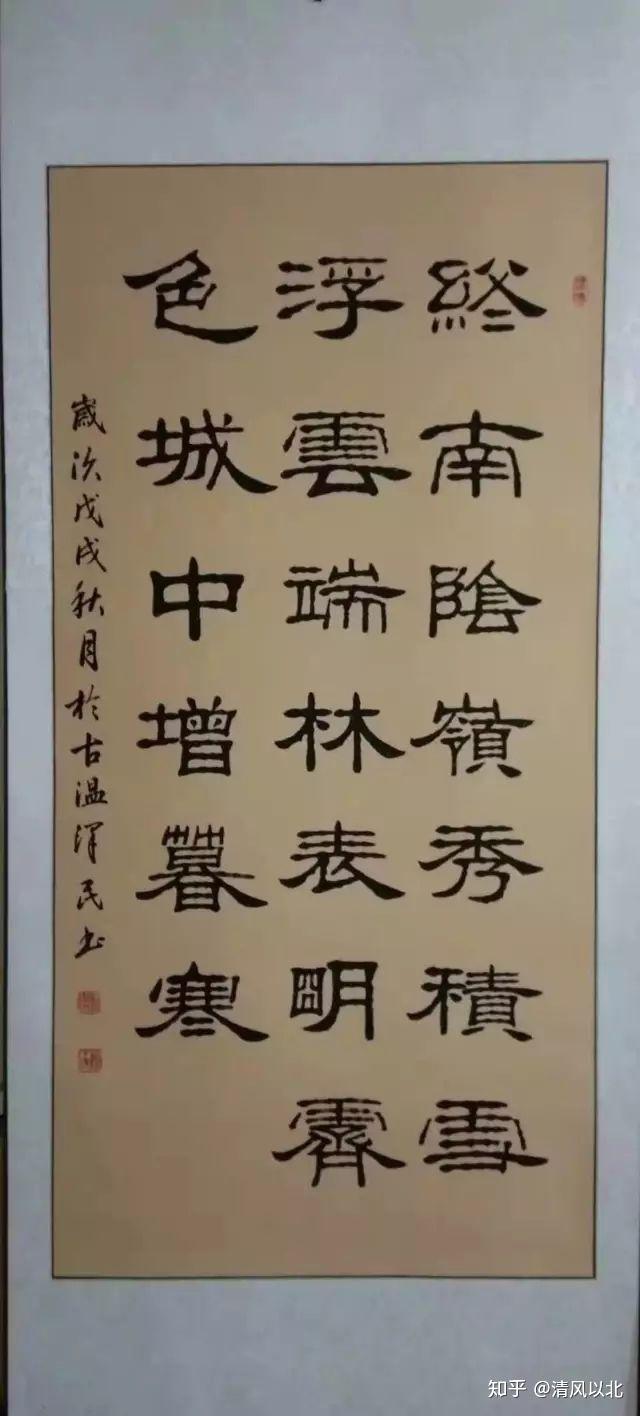 終南陰嶺秀積雪
浮雲端林表明霽
色城中增暮寒
歲次戊戌秋月於古溫澤民书
知乎 @清风以北